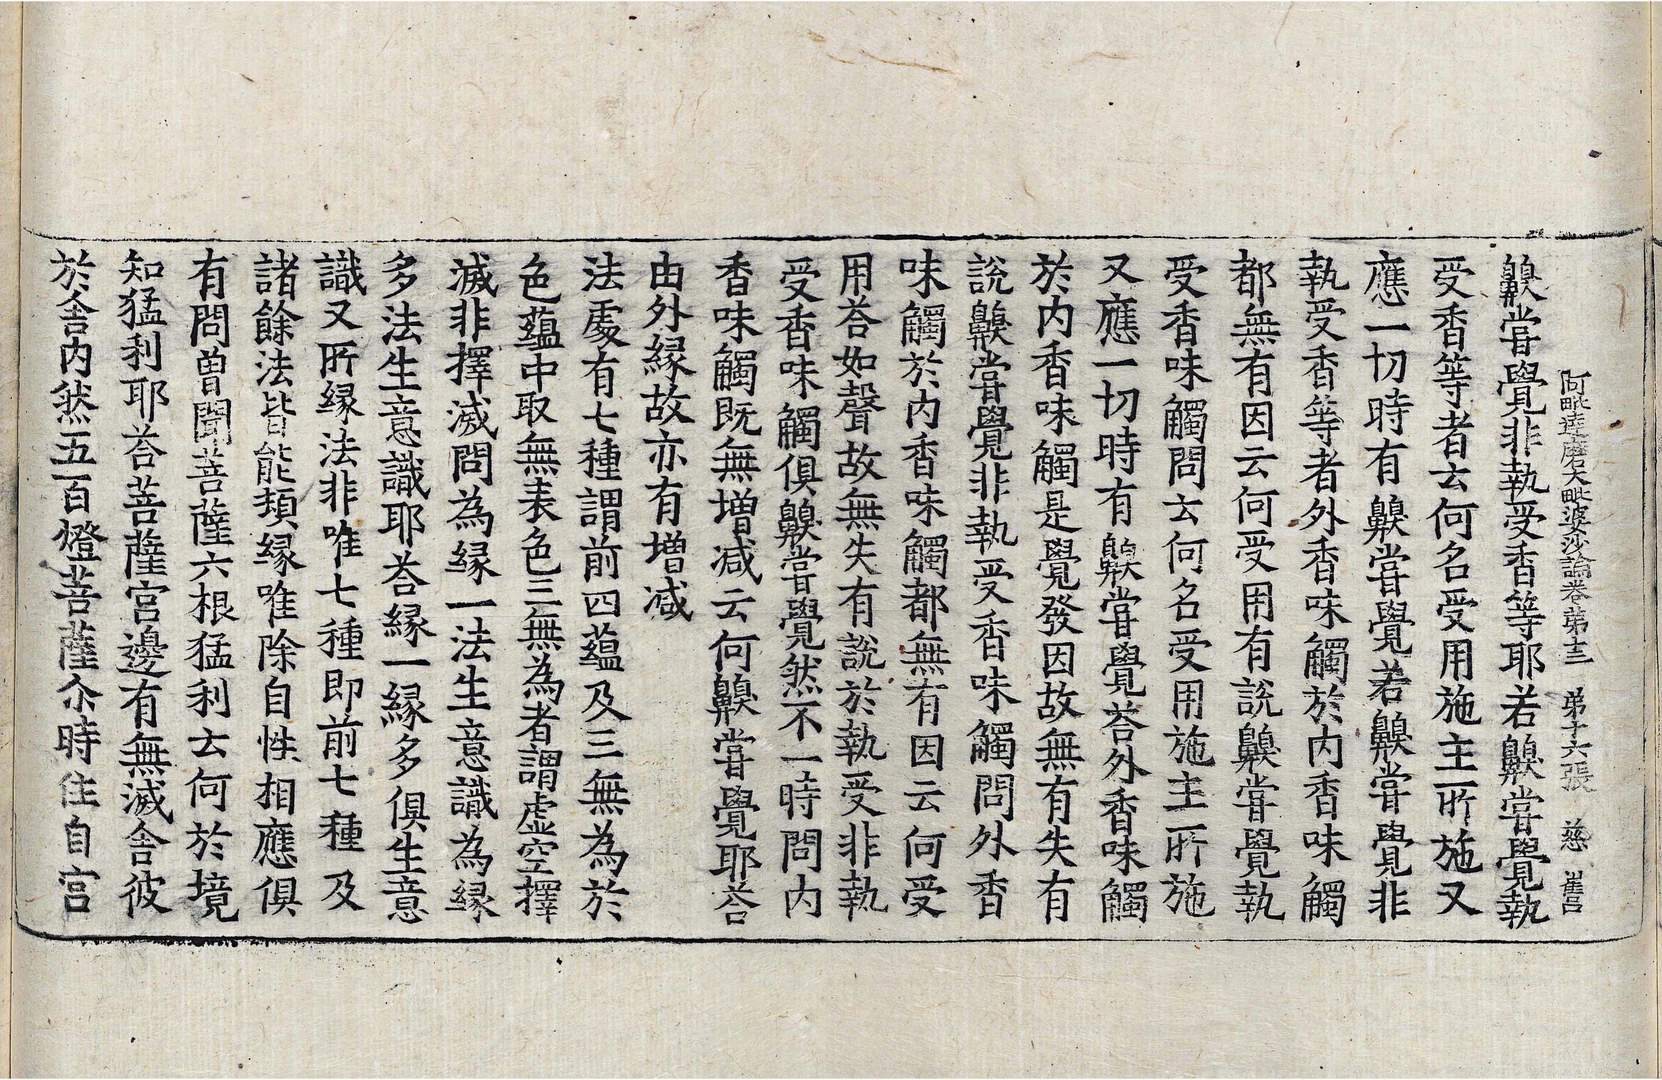 阿毗達磨大毗婆沙論卷第十三　第十六張　慈　崔呂
齅甞覺非執受香等耶若齅甞覺執
受香等者云何名受用施主所施又
應一切時有齅甞覺若齅甞覺非
執受香等者外香味觸於内香味觸
都無有因云何受用有說齅甞覺執
受香味觸問云何名受用施主所施
又應一切時有齅甞覺荅外香味觸
於内香味觸是覺發因故無有失有
說齅甞覺非執受香味觸問外香
味觸於内香味觸都無有因云何受
用荅如聲故無失有說於執受非執
受香味觸俱齅甞覺然不一時問内
香味觸既無増減云何齅甞覺耶荅
由外縁故亦有増減
法處有七種謂前四蘊及三無為於
色蘊中取無表色三無為者謂虛空擇
滅非擇滅問為縁一法生意識為縁
多法生意識耶荅縁一縁多俱生意
識又所縁法非唯七種即前七種及
諸餘法皆能類縁唯除自性相應俱
有問曽聞菩薩六根猛利云何於境
知猛利耶荅菩薩宫邊有無滅舎彼
於舎内然五百燈菩薩尒時住自宫